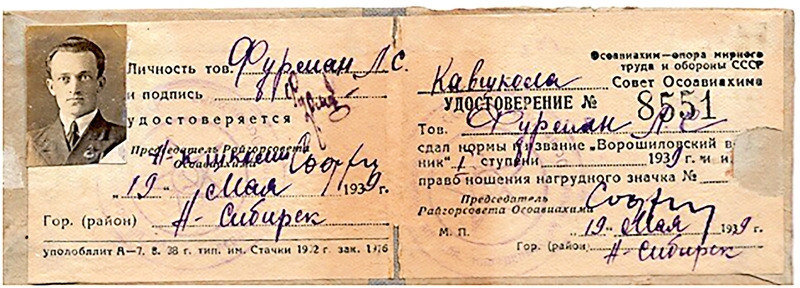 Личность тов. Фурман Л С.
и подпись
удостоверяется
Председатель Райгорсовета
Осоавиахима
"19" Мая 1939 г.
Гор. (район) Н-Сибирск
уполоблит А—7, 8. 38 г. тип. им. Стачки 1902 г. зак.
Осоавиахим—опора мирного
труда и обороны СССР
Кавшкола Совет Осоавиахима
УДОСТОВЕРЕНИЕ № 8551
Тов. Фурман Л С
сдал нормы на звание „Ворошиловский
ник" 1 ступени 1939 г. и
право ношения нагрудного значка №
Председатель
Райгорсовета Осоавиахима
М. П. "19" Мая 1939 г.
Гор. (район) Н-Сибирск